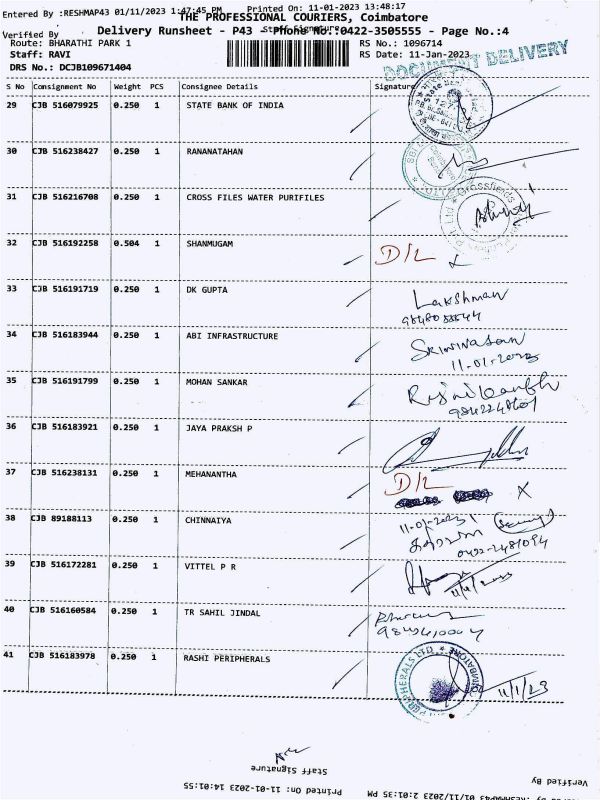 Entered By :RESHMAP43 01/11/2023 1:47:45 PM Printed On: 11-01-2023 13:48:17
THE PROFESSIONAL COURIERS, Coimbatore
Verified By Staff Signature
Delivery Runsheet - P43 - Phone No.:0422-3505555 - Page No.:4
Route: BHARATHI PARK 1 RS No.: 1096714
Staff: RAVI RS Date: 11-Jan-2023
DRS No.: DCJB109671404
DOCUMENT DELIVERY
S No Consignment No Weight PCS Consignee Details Signature
29 CJB 516079925 0.250 1 STATE BANK OF INDIA
30 CJB 516238427 0.250 1 RANANATAHAN
31 CJB 516216708 0.250 1 CROSS FILES WATER PURIFILES
32 CJB 516192258 0.504 1 SHANMUGAM D/L
33 CJB 516191719 0.250 1 DK GUPTA Lakshman
34 CJB 516183944 0.250 1 ABI INFRASTRUCTURE Srinivasan
11-01-2023
35 CJB 516191799 0.250 1 MOHAN SANKAR
36 CJB 516183921 0.250 1 JAYA PRAKSH P
37 CJB 516238131 0.250 1 MEHANANTHA D/L X
38 CJB 89188113 0.250 1 CHINNAIYA 11-01-2023
0422-2481094
39 CJB 516172281 0.250 1 VITTEL P R
40 CJB 516160584 0.250 1 TR SAHIL JINDAL
41 CJB 516183978 0.250 1 RASHI PERIPHERALS 11/1/23
Staff Signature
Verified By
Printed On: 11-01-2023 14:01:55
RESHMAP43 01/11/2023 2:01:35 PM